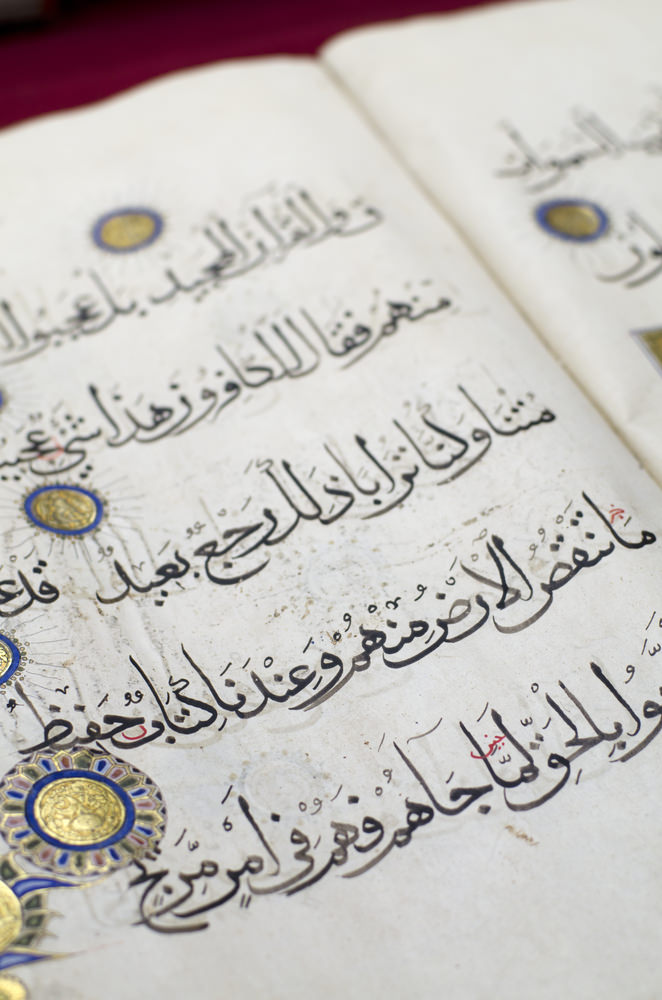 السموات
ق والقران المجيد بل عجبوا
منهم فقال الكافرون هذا شئ عجيب
متنا وكنا ترابا ذلك رجع بعيد قد
ما تنقص الارض منهم وعندنا كتاب حفيظ
بالحق لما جاهم فهم في امر مريج